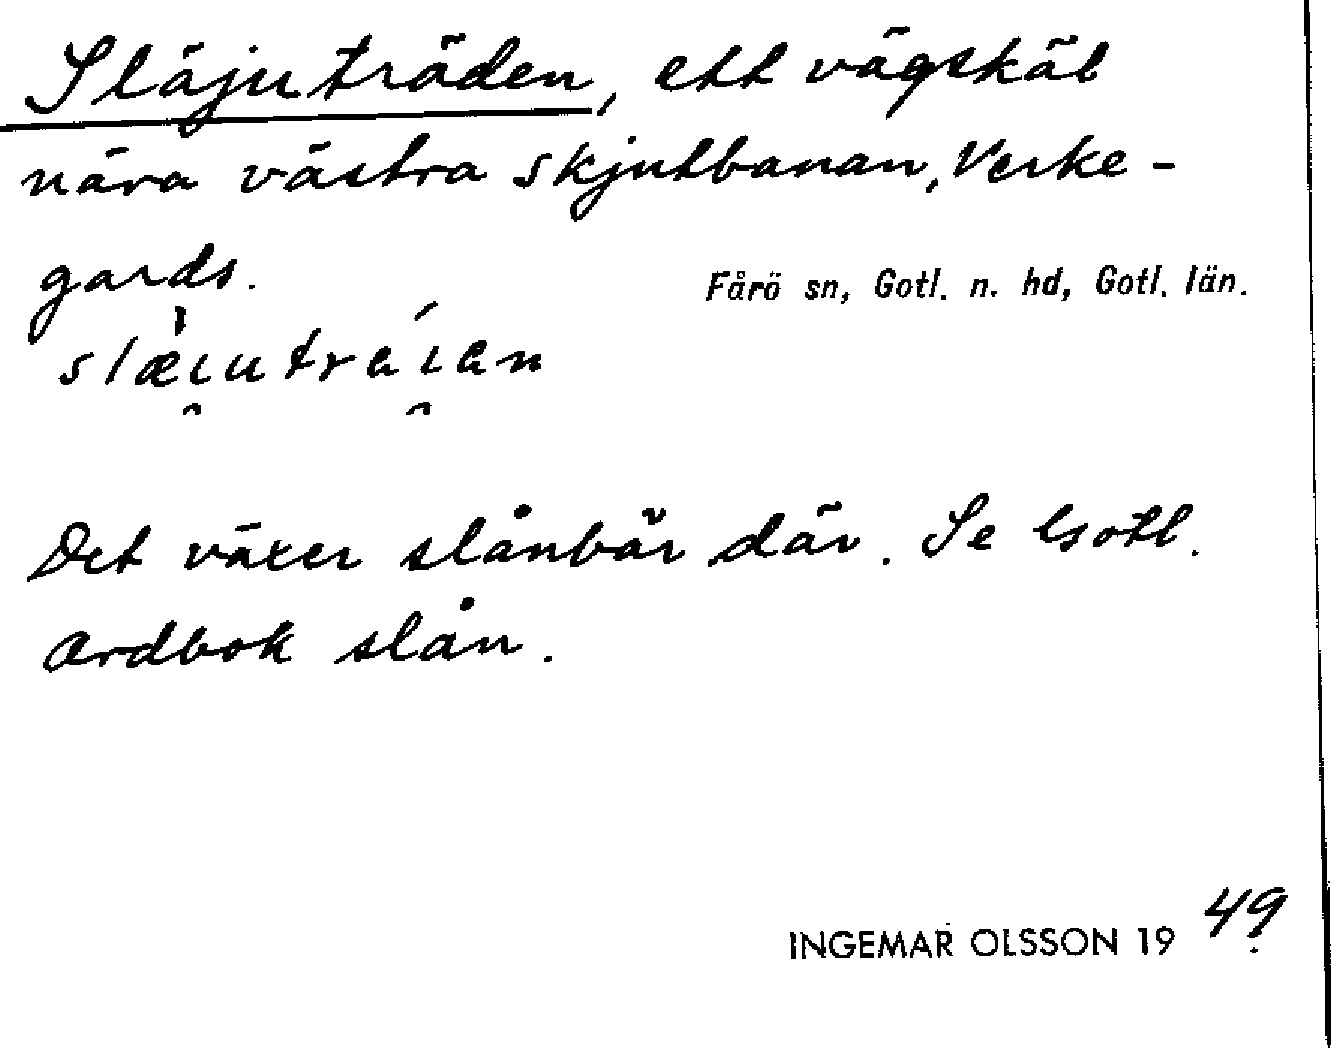 Släjuträden, ett vägskäl
nära västra skjutbanan, Verke-
gards.
Fårö sn, Gotl. n. hd, Gotl. län.
Det växer slånbär där. Se Gotl.
Ordbok slån.
INGEMAR OLSSON 1949